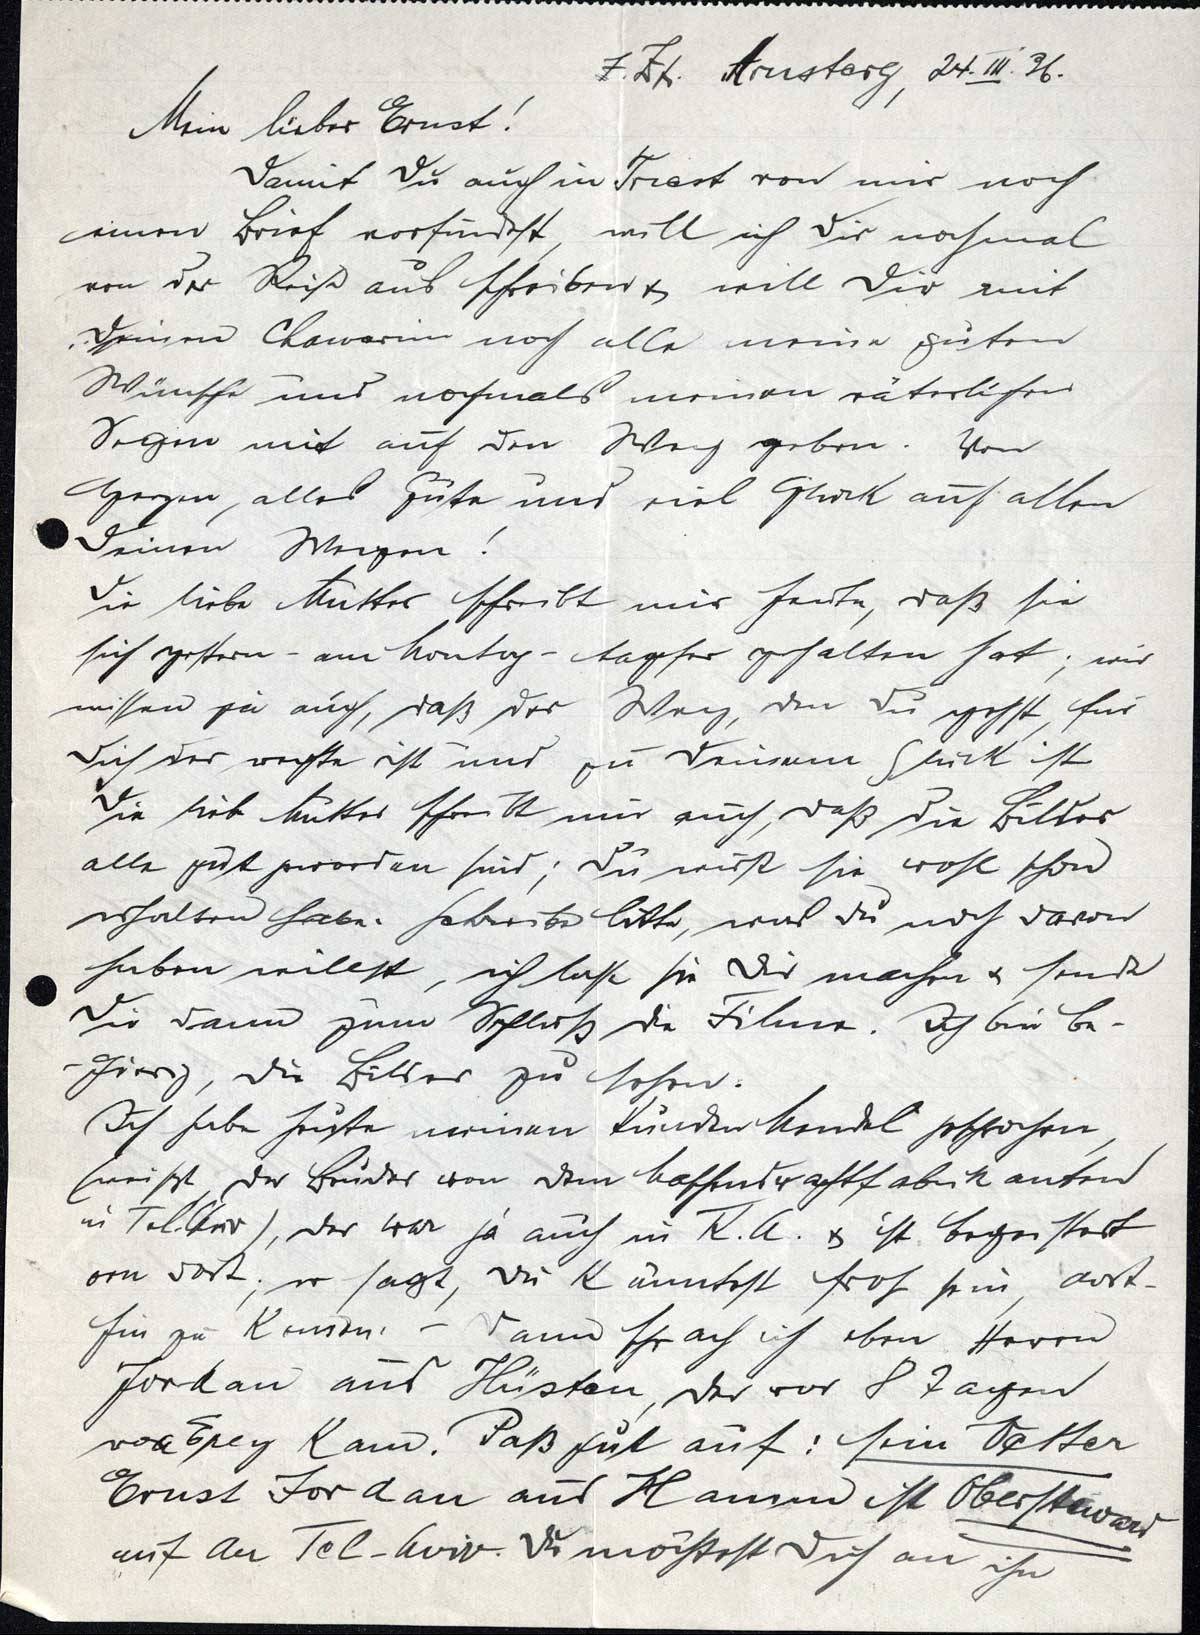 z. Zt. Arnsberg, 24. III. 36.
Mein lieber Ernst!
Damit Du auch in Triest von mir noch
einen Brief vorfindest, will ich Dir nochmal
von der Reise aus schreiben & will Dir mit
Deinen Chawerim noch alle meine guten
Wünsche und nochmals meinen väterlichen
Segen mit auf den Weg geben. Von
Herzen, alles Gute und viel Glück auf allen
Deinen Wegen!
Die liebe Mutter schreibt mir heute, daß sie
sich gestern - am Montag - tapfer gehalten hat; wir
wissen ja auch, daß der Weg, den Du gehst, für
Dich der rechte ist und zu Deinem Glück ist
Die liebe Mutter schreibt mir auch, daß die Bilder
alle gut geworden sind; Du wirst sie wohl schon
erhalten haben. Schreibe bitte, was Du noch davon
haben willst, ich lasse sie Dir machen & sende
Dir dann zum Schluß die Filme. Ich bin be-
-gierig, die Bilder zu sehen.
Ich habe heute meinen Kunden Mendel gesprochen,
(weißt, der Bruder von dem
in Tel-Aviv), der war ja auch in K.A. & ist begeistert
von dort; er sagt, Du könntest froh sein, dort-
hin zu kommen. - Dann sprach ich eben Herrn
Jordan aus Hüsten, der vor 8 Tagen
von kam. Paß gut auf: sein Vetter
Ernst Jordan aus Hamm ist Obersteward
auf der Tel-Aviv. Du möchtest Dich an ihn